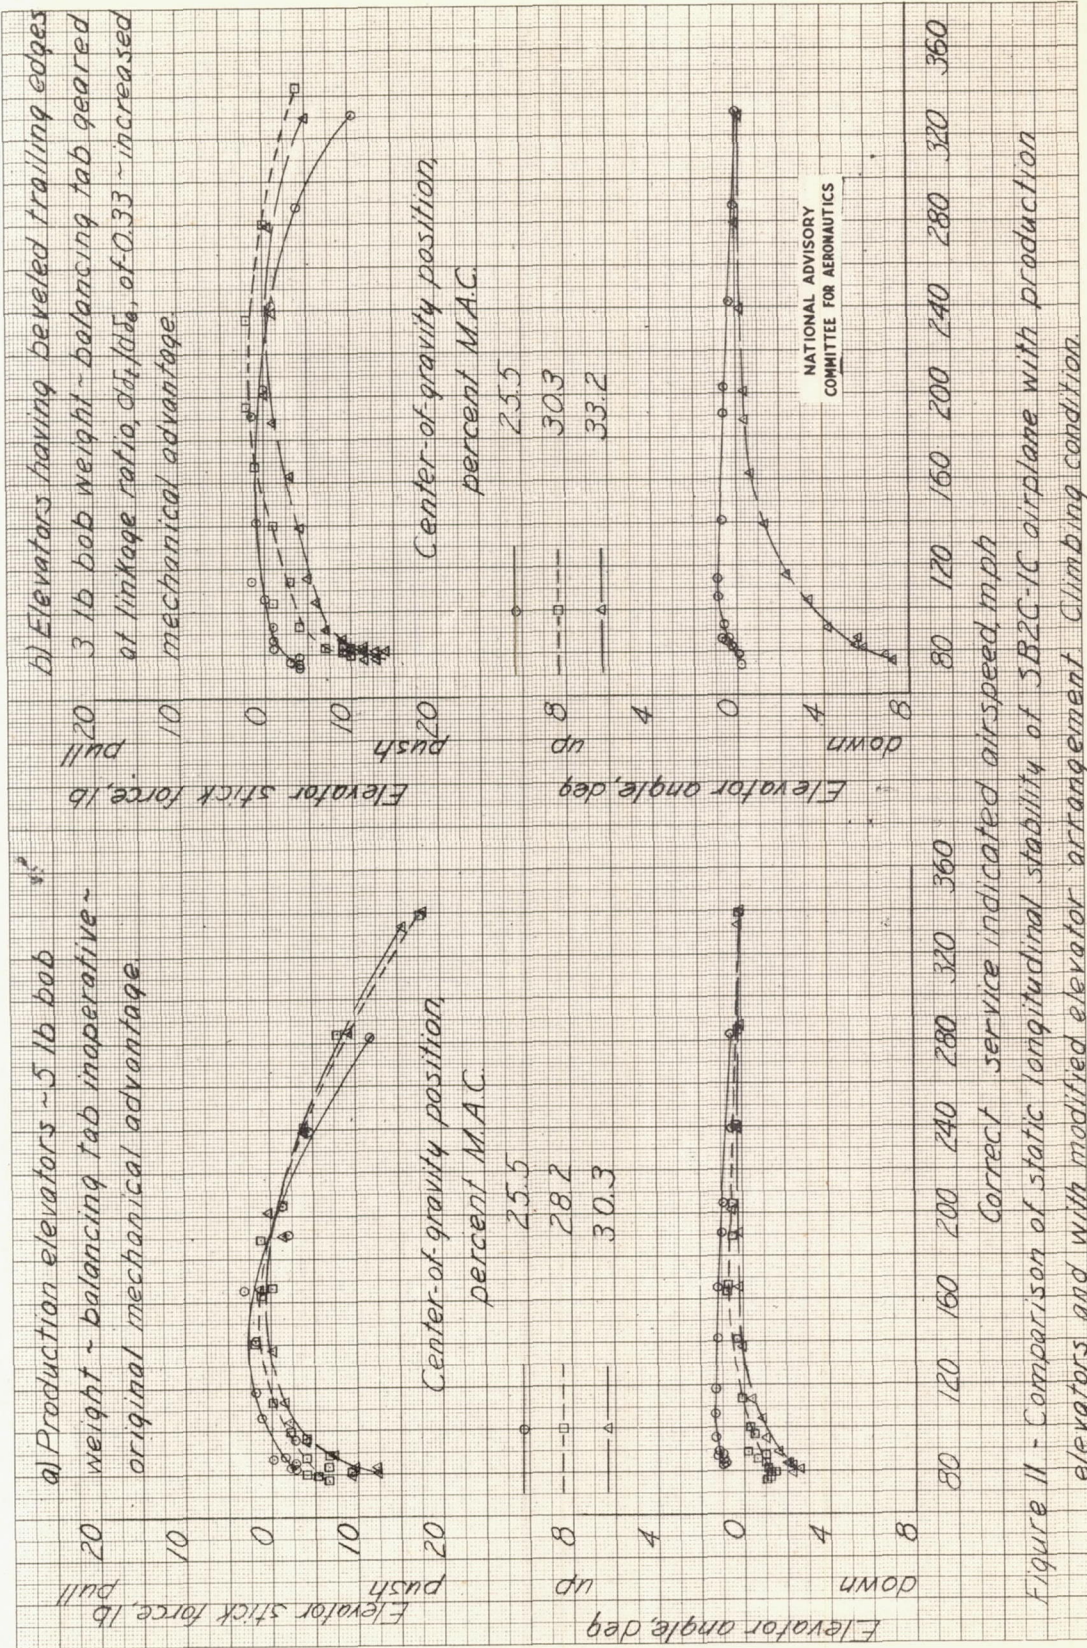 a) Production elevators ~ 5 lb bob
weight ~ balancing tab inoperative ~
original mechanical advantage.
pull
20
10
0
10
20
push
Elevator stick force, lb
Center-of-gravity position,
percent M.A.C.
25.5
28.2
30.3
up
8
4
0
4
8
down
Elevator angle, deg
80 120 160 200 240 280 320 360
b) Elevators having beveled trailing edges
3 lb bob weight ~ balancing tab geared
at linkage ratio, dδt/dδe, of -0.33 ~ increased
mechanical advantage.
pull
20
10
0
10
20
push
Elevator stick force, lb
Center-of-gravity position,
percent M.A.C.
25.5
30.3
33.2
up
8
4
0
4
8
down
Elevator angle, deg
80 120 160 200 240 280 320 360
NATIONAL ADVISORY
COMMITTEE FOR AERONAUTICS
Correct service indicated airspeed, mph
Figure 11 - Comparison of static longitudinal stability of SB2C-1C airplane with production
elevators and with modified elevator arrangement. Climbing condition.